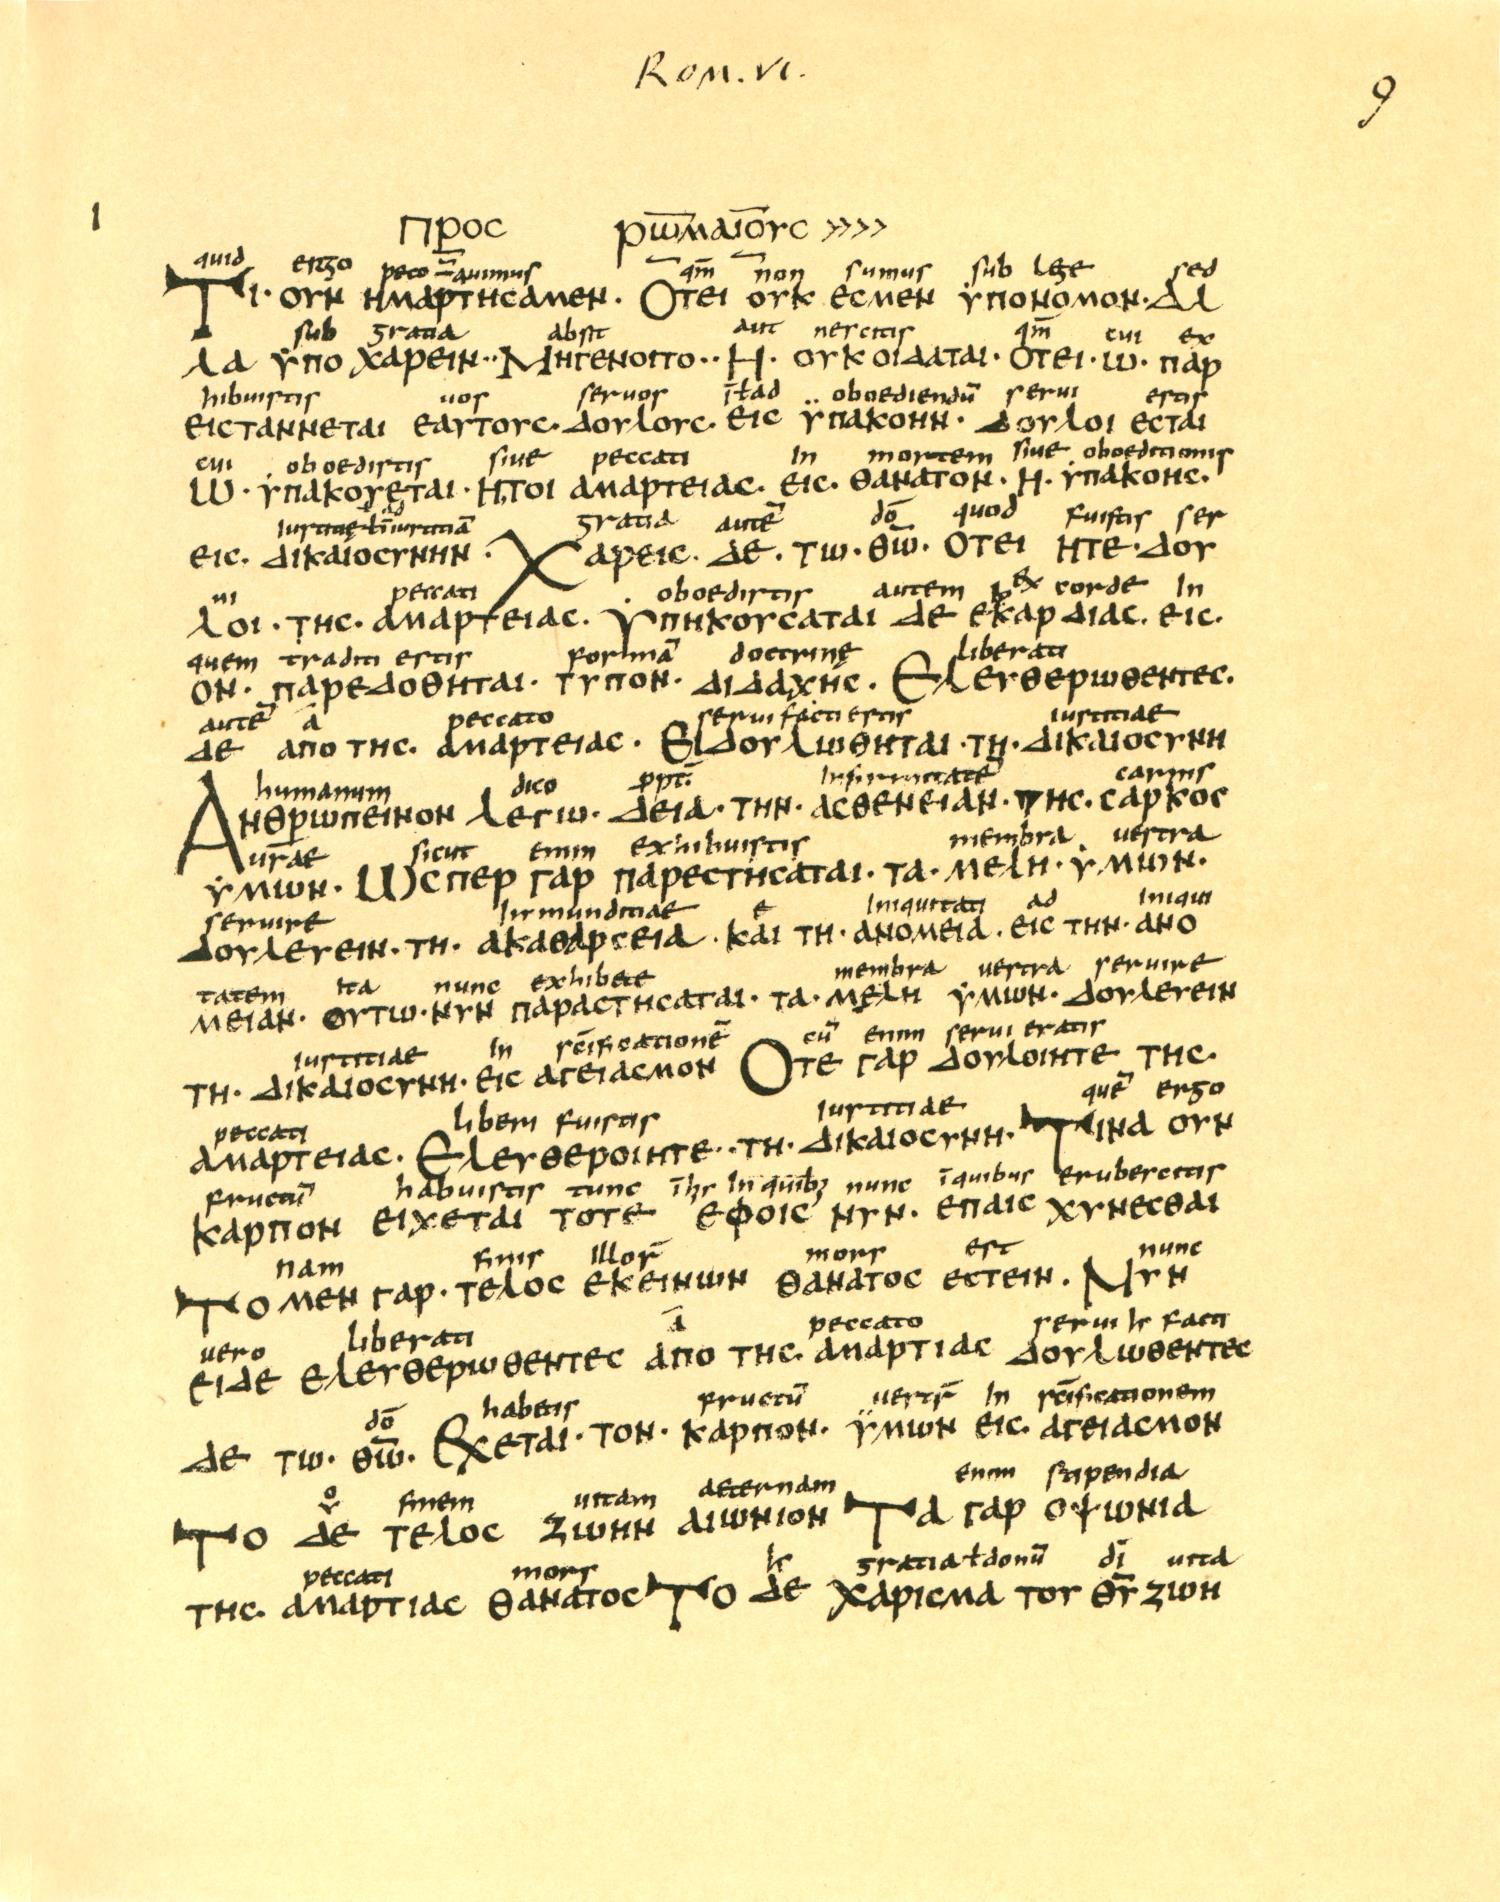 Rom. VI.
9
1
προς ρωμαιους >>>>
quid ergo peccauimus qm̄ non sumus sub lege sed
Τι· ουν ημαρτησαμεν· Οτει ουκ εσμεν ϋπονομον· αλ
sub gratia absit aut nescitis qm̄ cui ex
λα ϋπο χαρειν·· Μηγενοιτο·· Η· ουκ οιδαται· οτει· ω· παρ
hibuistis uos seruos ł ad oboediendū serui estis
εισταννεται εαυτους· δουλους· εις ϋπακοην· δουλοι εσται
cui oboedistis siue peccati in mortem siue oboeditionis
ω· ϋπακουεται· ητοι αμαρτειας· εις· θανατον· η· ϋπακοης·
gratia autē dō quod fuistis ser
εις· δικαιοσυνην· Χαρεις· δε· τω· θω̄· οτει ητε· δου
ui peccati oboedistis autem ex corde in
λοι· της· αμαρτειας· ϋπηκουσαται δε εκαρδιας· εις·
quem traditi estis formā doctrinę liberati
ον· παρεδοθηται· τυπον· διδαχης· Ελευθερωθεντες·
autē ā peccato serui facti estis iustitiae
δε απο της· αμαρτειας· Ειδουλωθηται· τη· δικαιοσυνη
humanum dico ppt̄ infirmitatē carnis
Ανθρωπεινον λεγω· δεια· την· ασθενειαν· της· σαρκος
urāe sicut enim exhibuistis membra uestra
ϋμων· Ωσπερ γαρ παρεστησαται· τα· μελη· ϋμων·
seruire inmunditiae e iniquitati ad iniqui
δουλευειν· τη· ακαθαρσεια· και τη· ανομεια· εις την· ανο
tatem ita nunc exhibete membra uestra seruire
μειαν· ουτω· νυν παραστησαται· τα· μελη ϋμων· δουλευειν
iustitiae in sc̄ificationē cū enim serui eratis
τη· δικαιοσυνη· εις αγειασμον Οτε γαρ δουλοιητε της·
peccati liberi fuistis iustitiae quē ergo
αμαρτειας· Ελευθεροιητε·· τη· δικαιοσυνη· Τινα ουν
fructū habuistis tunc in quib; nunc ī quibus erubescitis
καρπον ειχεται τοτε εφοις νυν· επαις χυνεσθαι
nam finis illor̄ mors est nunc
Το μεν γαρ· τελος εκεινων θανατος εστειν· Νυν
uero liberati ā peccato serui facti
ειδε ελευθερωθεντες απο της· αμαρτιας δουλωθεντες
dō habetis fructū uestr̄ in sc̄ificationem
δε τω· θω̄· Εχεται· τον· καρπον· ϋμων εις· αγειασμον
finem uitam aeternam enim stipendia
Το δε τελος ζωην αιωνιον Τα γαρ οψωνια
peccati mors gratia ł donū dī uita
της· αμαρτιας θανατος Το δε χαρισμα του θῡ ζωη